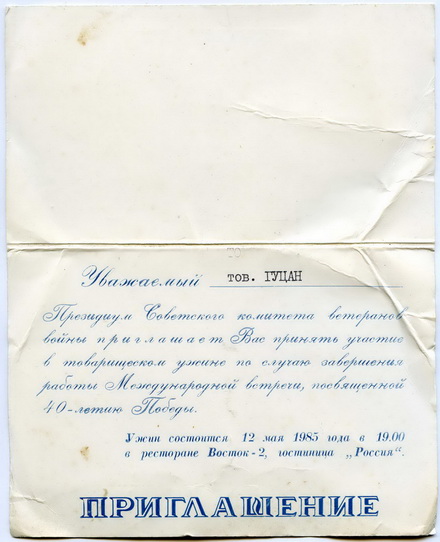 Уважаемый тов. ГУЦАН
Президиум Советского комитета ветеранов
войны приглашает Вас принять участие
в товарищеском ужине по случаю завершения
работы Международной встречи, посвященной
40-летию Победы.
Ужин состоится 12 мая 1985 года в 19.00
в ресторане Восток-2, гостиница „Россия“.
ПРИГЛАШЕНИЕ